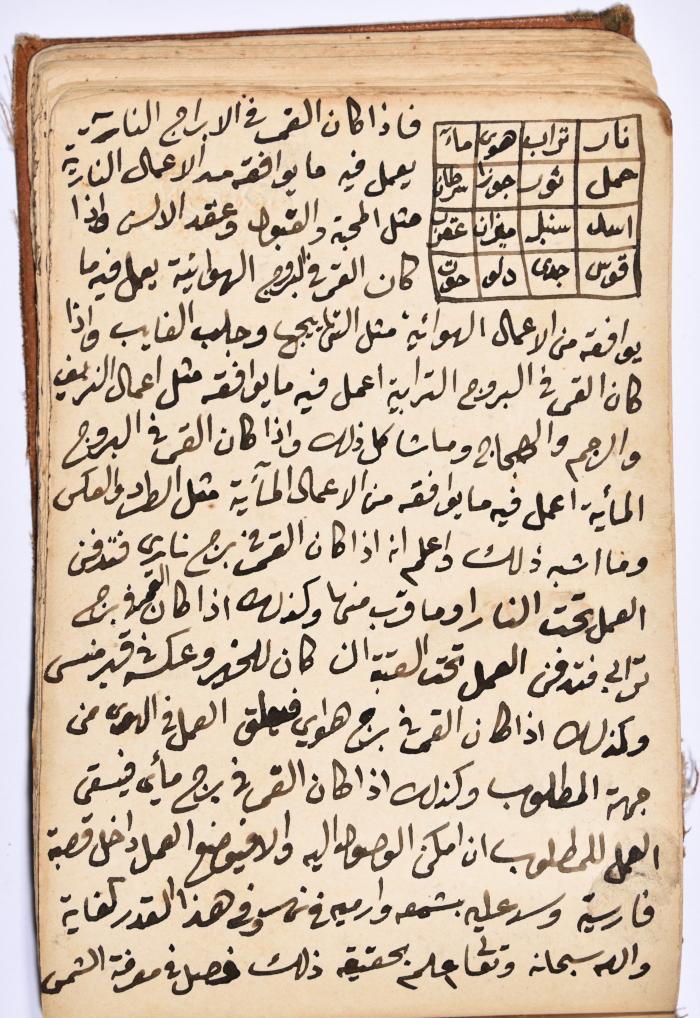 نار تراب هوى ماء
حمل ثور جوزا سرطان
اسد سنبله ميزان عقرب
قوس جدى دلو حوت
فاذا كان القمر فى الابراج النارية
يعمل فيه ما يوافقه من الاعمال النارية
مثل المحبة والقبول وعقد الالسن واذا
كان القمر فى البروج الهوائية يعمل فيه ما
يوافقه من الاعمال الهوائية مثل التهاييج وجلب الغايب واذا
كان القمر فى البروج الترابية اعمل فيه ما يوافقه مثل اعمال النزيف
والرجم وما شاكل ذلك واذا كان القمر فى البروج
المأية اعمل فيه ما يوافقه من الاعمال المأية مثل الطرد والعكس
وما اشبه ذلك واعلم انه اذا كان القمر فى برج نارى فتدفن
العمل تحت النار او ما قرب منها وكذلك اذا كان القمر فى برج
ترابي فتدفن العمل تحت العتبة ان كان للخير وعكسه فى قبر منسى
وكذلك اذا كان القمر فى برج هواي فيعلق العمل فى الهوى من
جهة المطلوب وكذلك اذا كان القمر فى برج مأي فيسقى
العمل للمطلوب ان امكن الوصول اليه والا فيوضع العمل داخل قصبة
فارسية وسد عليه بشمعه وارميه فى نهر وفى هذا القدر كفاية
والله سبحانه وتعالى اعلم بحقيقة ذلك فصل فى معرفة الشمس